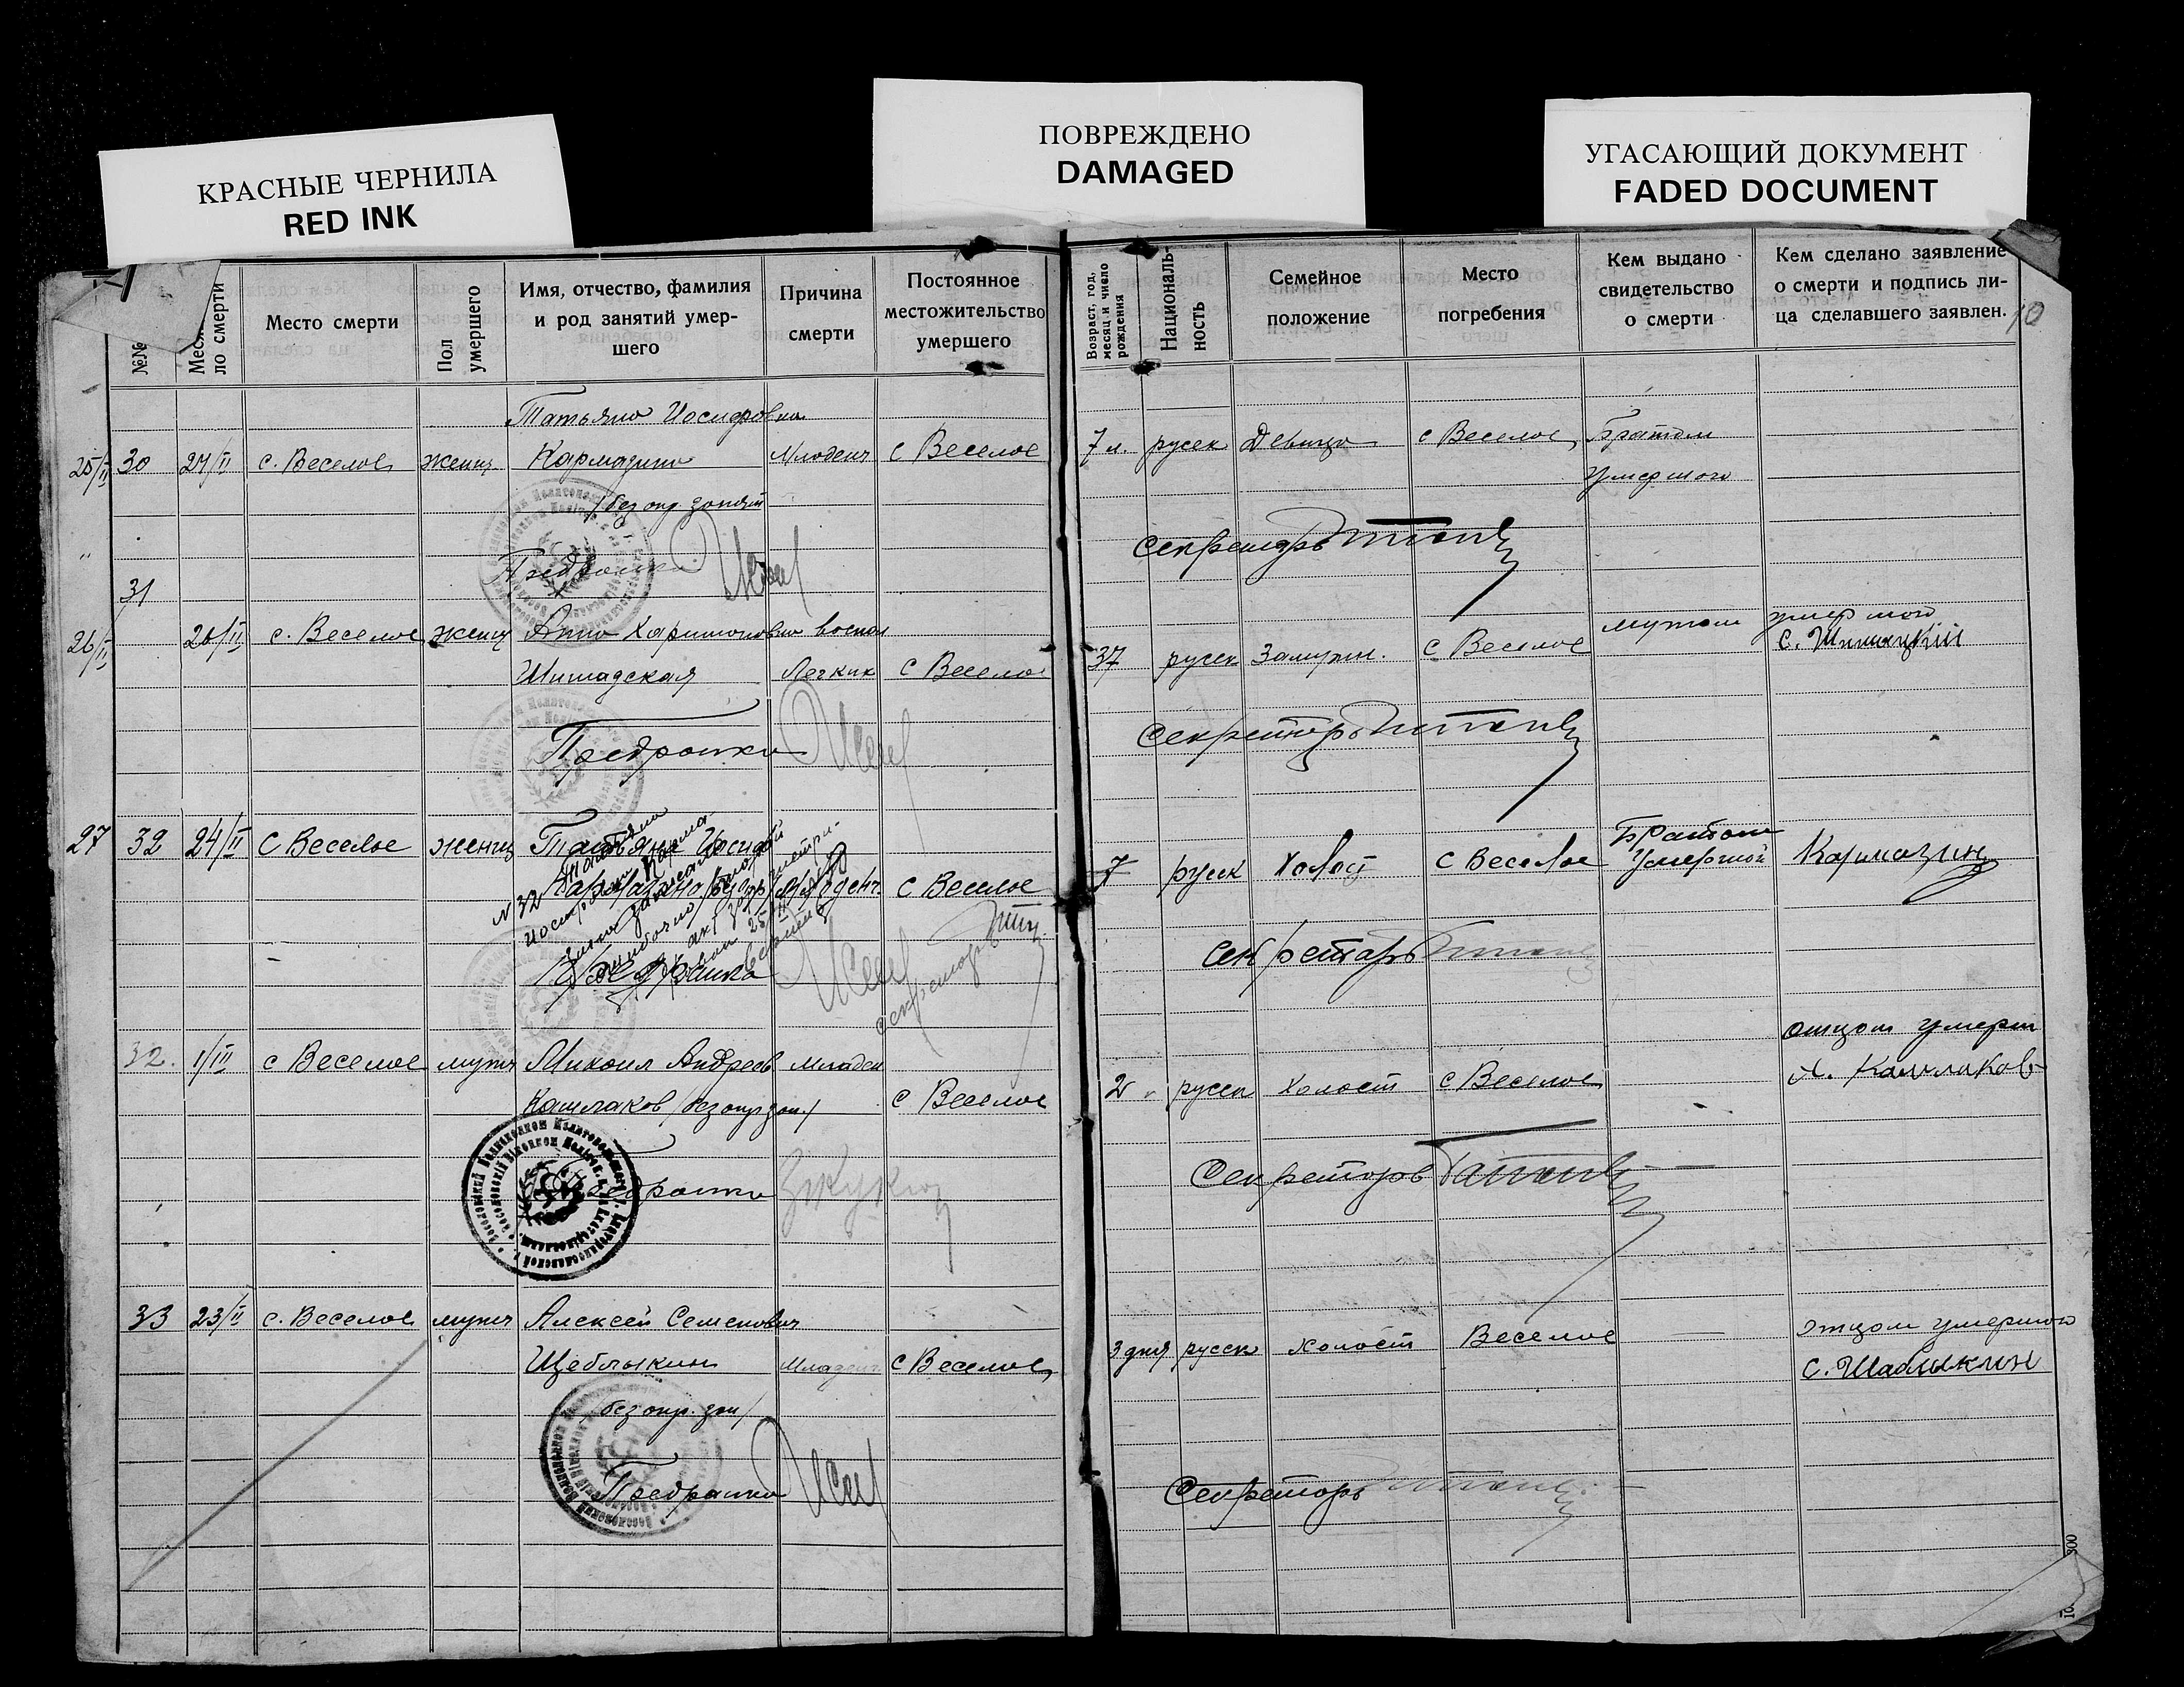 КРАСНЫЕ ЧЕРНИЛА
RED INK
ПОВРЕЖДЕНО
DAMAGED
УГАСАЮЩИЙ ДОКУМЕНТ
FADED DOCUMENT
№№
ло смерти
Место смерти
Пол умершего
Имя, отчество, фамилия
и род занятий умер-
шего
Причина
смерти
Постоянное
местожительство
умершего
Возраст, год,
месяц и число
рождения
Националь-
ность
Семейное
положение
Место
погребения
Кем выдано
свидетельство
о смерти
Кем сделано заявление
о смерти и подпись ли-
ца сделавшего заявлен.
10
Татьяна Иосифовна
25/II 30 24/II с. Веселое женщ Кармазина Младенч с Веселое 7 л. русск Девица с Веселое Братом
/без опр занят умершого
Секретарь
31
26/II 26/II с. Веселое женщ Анна Харитоновна воспал мужем умершого
Шишацкая Легких с Веселое 37 русск Замужн. с Веселое С. Шишацкий
Предрайка
Секретарь
27 32 24/II С Веселое женщ Татьяна Иосифов Братом
с Веселое 7 русск Холост с Веселое Умершой Кармазин
N 32
Секретарь
32. 1/III с Веселое мужч Михаил Андреев Младен отцом умерш
Кашлаков /без опр зан./ с Веселое 2 русск Холост с Веселое А. Кашлаков
Секретарь
33 23/II с. Веселое мужч Алексей Семенович отцом умершого
Щеблыкин Младенч с Веселое 3 дня русск холост Веселое — С. Шаблыкин
/без опр. зан/
Секретарь